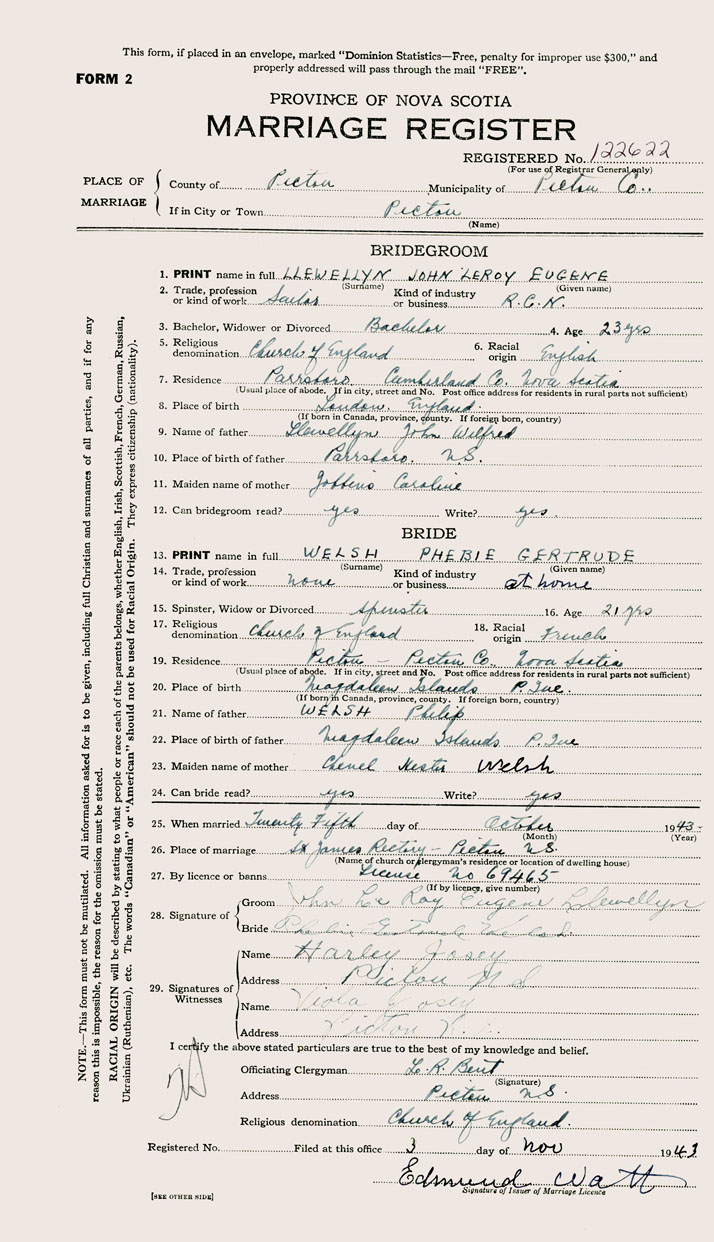 This form, if placed in an envelope, marked "Dominion Statistics—Free, penalty for improper use $300," and
properly addressed will pass through the mail "FREE".
FORM 2
PROVINCE OF NOVA SCOTIA
MARRIAGE REGISTER
REGISTERED No. 122622
(For use of Registrar General only)
PLACE OF MARRIAGE
County of Pictou Municipality of Pictou Co.
If in City or Town Pictou
(Name)
BRIDEGROOM
1. PRINT name in full LLEWELLYN JOHN LEROY EUGENE
(Surname) (Given name)
2. Trade, profession or kind of work Sailor Kind of industry or business R.C.N.
3. Bachelor, Widower or Divorced Bachelor 4. Age 23 yrs
5. Religious denomination Church of England 6. Racial origin English
7. Residence Parrsboro Cumberland Co. Nova Scotia
(Usual place of abode. If in city, street and No. Post office address for residents in rural parts not sufficient)
8. Place of birth London, England.
(If born in Canada, province, county. If foreign born, country)
9. Name of father Llewellyn John Wilfred
10. Place of birth of father Parrsboro. N.S.
11. Maiden name of mother Caroline
12. Can bridegroom read? yes Write? yes.
BRIDE
13. PRINT name in full WELSH PHEBIE GERTRUDE
(Surname) (Given name)
14. Trade, profession or kind of work none Kind of industry or business at home
15. Spinster, Widow or Divorced spinster 16. Age 21 yrs
17. Religious denomination Church of England 18. Racial origin French
19. Residence Pictou – Pictou Co. Nova Scotia
(Usual place of abode. If in city, street and No. Post office address for residents in rural parts not sufficient)
20. Place of birth Magdaleen Islands P. Que
(If born in Canada, province, county. If foreign born, country)
21. Name of father WELSH Philip
22. Place of birth of father Magdaleen Islands P. Que
23. Maiden name of mother Chenel Hester Welsh
24. Can bride read? yes Write? yes
25. When married Twenty Fifth day of October 1943
(Month) (Year)
26. Place of marriage St James Rectory – Pictou N.S.
(Name of church or clergyman's residence or location of dwelling house)
27. By licence or banns License No 69465
(If by licence, give number)
28. Signature of
Groom John Le Roy Eugene Llewellyn
Bride
29. Signatures of Witnesses
Name Harley Josey
Address Pictou N S
Name Viola Josey
Address Pictou N.
I certify the above stated particulars are true to the best of my knowledge and belief.
Officiating Clergyman L. R. Bent
(Signature)
Address Pictou N.S.
Religious denomination Church of England.
Registered No. Filed at this office 3 day of Nov 1943
Edmund Watt
Signature of Issuer of Marriage Licence
[SEE OTHER SIDE]
NOTE.—This form must not be mutilated. All information asked for is to be given, including full Christian and surnames of all parties, and if for any
reason this is impossible, the reason for the omission must be stated.
RACIAL ORIGIN will be described by stating to what people or race each of the parents belongs, whether English, Irish, Scottish, French, German, Russian,
Ukrainian (Ruthenian), etc. The words "Canadian" or "American" should not be used for Racial Origin. They express citizenship (nationality).